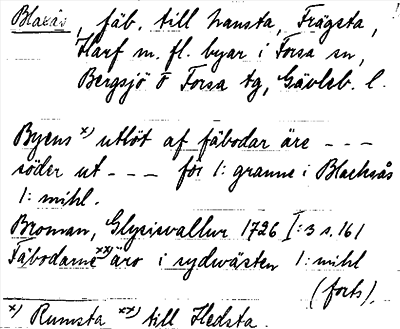 Blaxås, fäb. till Hansta, Frägsta,
Harf m. fl. byar i Forsa sn,
Bergsjö o Forsa tg, Gävleb. l.
Byens x) utlöt af fäbodar äre - - -
söder ut - - - för 1: granne i Blacksås
1: mihl.
Broman, Glysisvallur 1726 I:3 s. 161
Fäbodarne xx) äro i sydwästen 1: mihl
(forts).
x) Rumsta xx) till Hedsta.